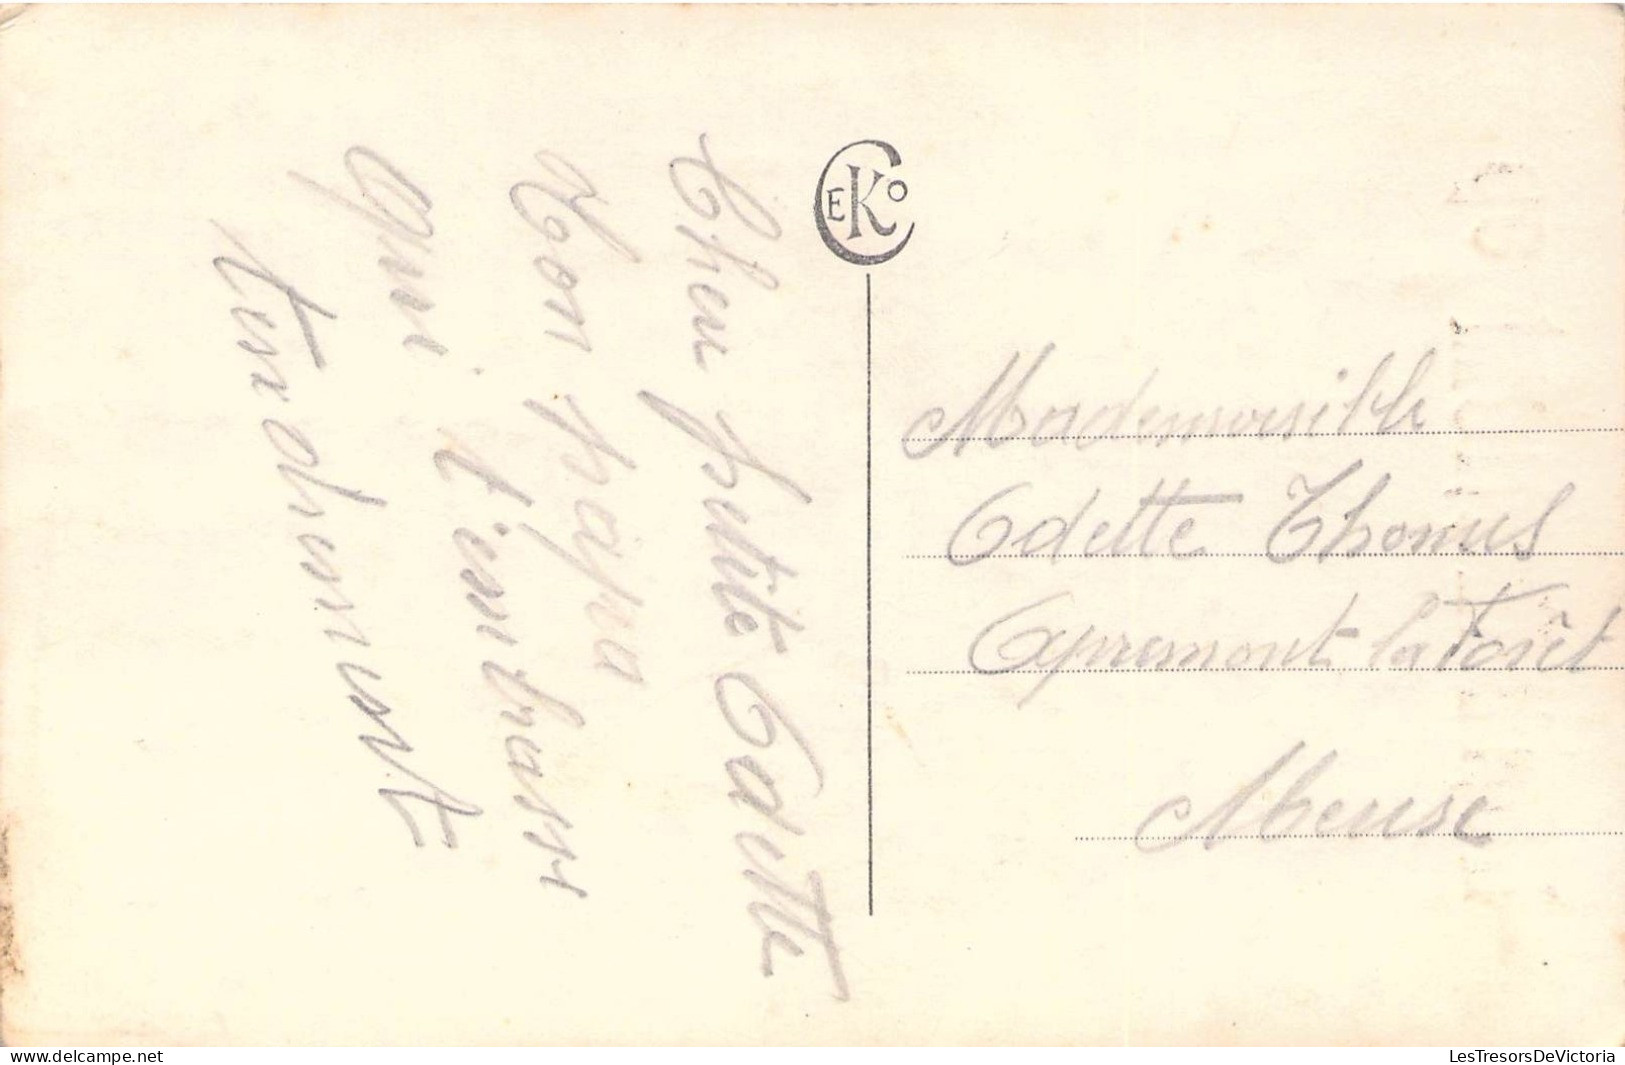 Cher petite Odette
ton papa
qui t'embrasse
tendrement
CEKO
Mademoiselle
Odette Thomus
Apremont la Forêt
Meuse
delcampe.net
LesTresorsDeVictoria